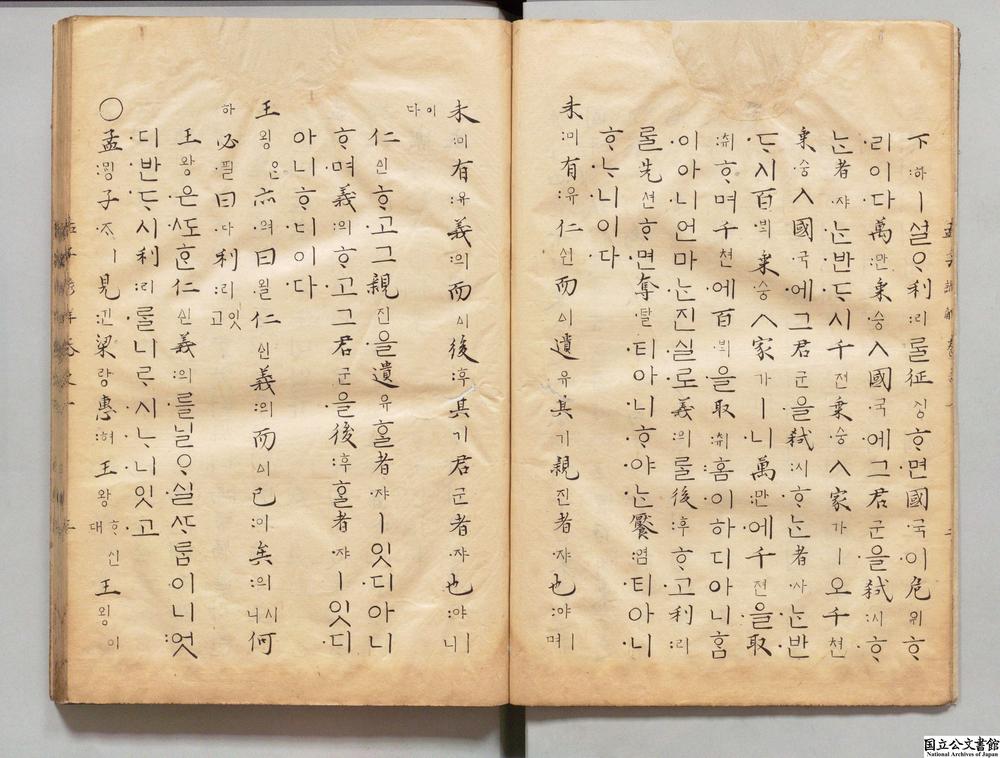 下:하ㅣ설ᄋᆞ利:리ᄅᆞᆯ征징ᄒᆞ면國·국이危위ᄒᆞ
리이다萬:만乘승ㅅ國·국에그君군을弑:시ᄒᆞ
ᄂᆞᆫ者:쟈ᄂᆞᆫ반ᄃᆞ시千쳔乘승ㅅ家가ㅣ오千쳔
乘승ㅅ國·국에그君군을弑:시ᄒᆞᄂᆞᆫ者:쟈ᄂᆞᆫ반
ᄃᆞ시百·ᄇᆡᆨ乘승ㅅ家가ㅣ니萬:만에千쳔을取
:츄ᄒᆞ며千쳔에百·ᄇᆡᆨ을取:츄홈이하디아니홈
이아니언마ᄂᆞᆫ진실로義:의ᄅᆞᆯ後:후ᄒᆞ고利:리
ᄅᆞᆯ先션ᄒᆞ면奪·탈티아니ᄒᆞ야ᄂᆞᆫ饜:염티아니
ᄒᆞᄂᆞ니이다
未:미有:유仁신而이遺유其기親친者:쟈也:야ㅣ며
未:미有:유義:의而이後:후其기君군者:쟈也:야ㅣ니
이다
仁신ᄒᆞ고그親친을遺유ᄒᆞᆯ者:쟈ㅣ잇디아니
ᄒᆞ며義:의ᄒᆞ고그君군을後:후ᄒᆞᆯ者:쟈ㅣ잇디
아니ᄒᆞ디이다
王왕은亦·역曰·왈仁신義:의而이已:이矣:의시니何
하必·필曰·왈利:리잇고
王왕은ᄯᅩᄒᆞᆫ仁신義:의를닐ᄋᆞ실ᄯᆞᄅᆞᆷ이니엇
디반ᄃᆞ시利:리ᄅᆞᆯ니ᄅᆞ시ᄂᆞ니잇고
○孟:ᄆᆡᆼ子:ᄌᆞㅣ見:견梁량惠:혜王왕ᄒᆞ신대王왕이
国立公文書館
National Archives of Japan